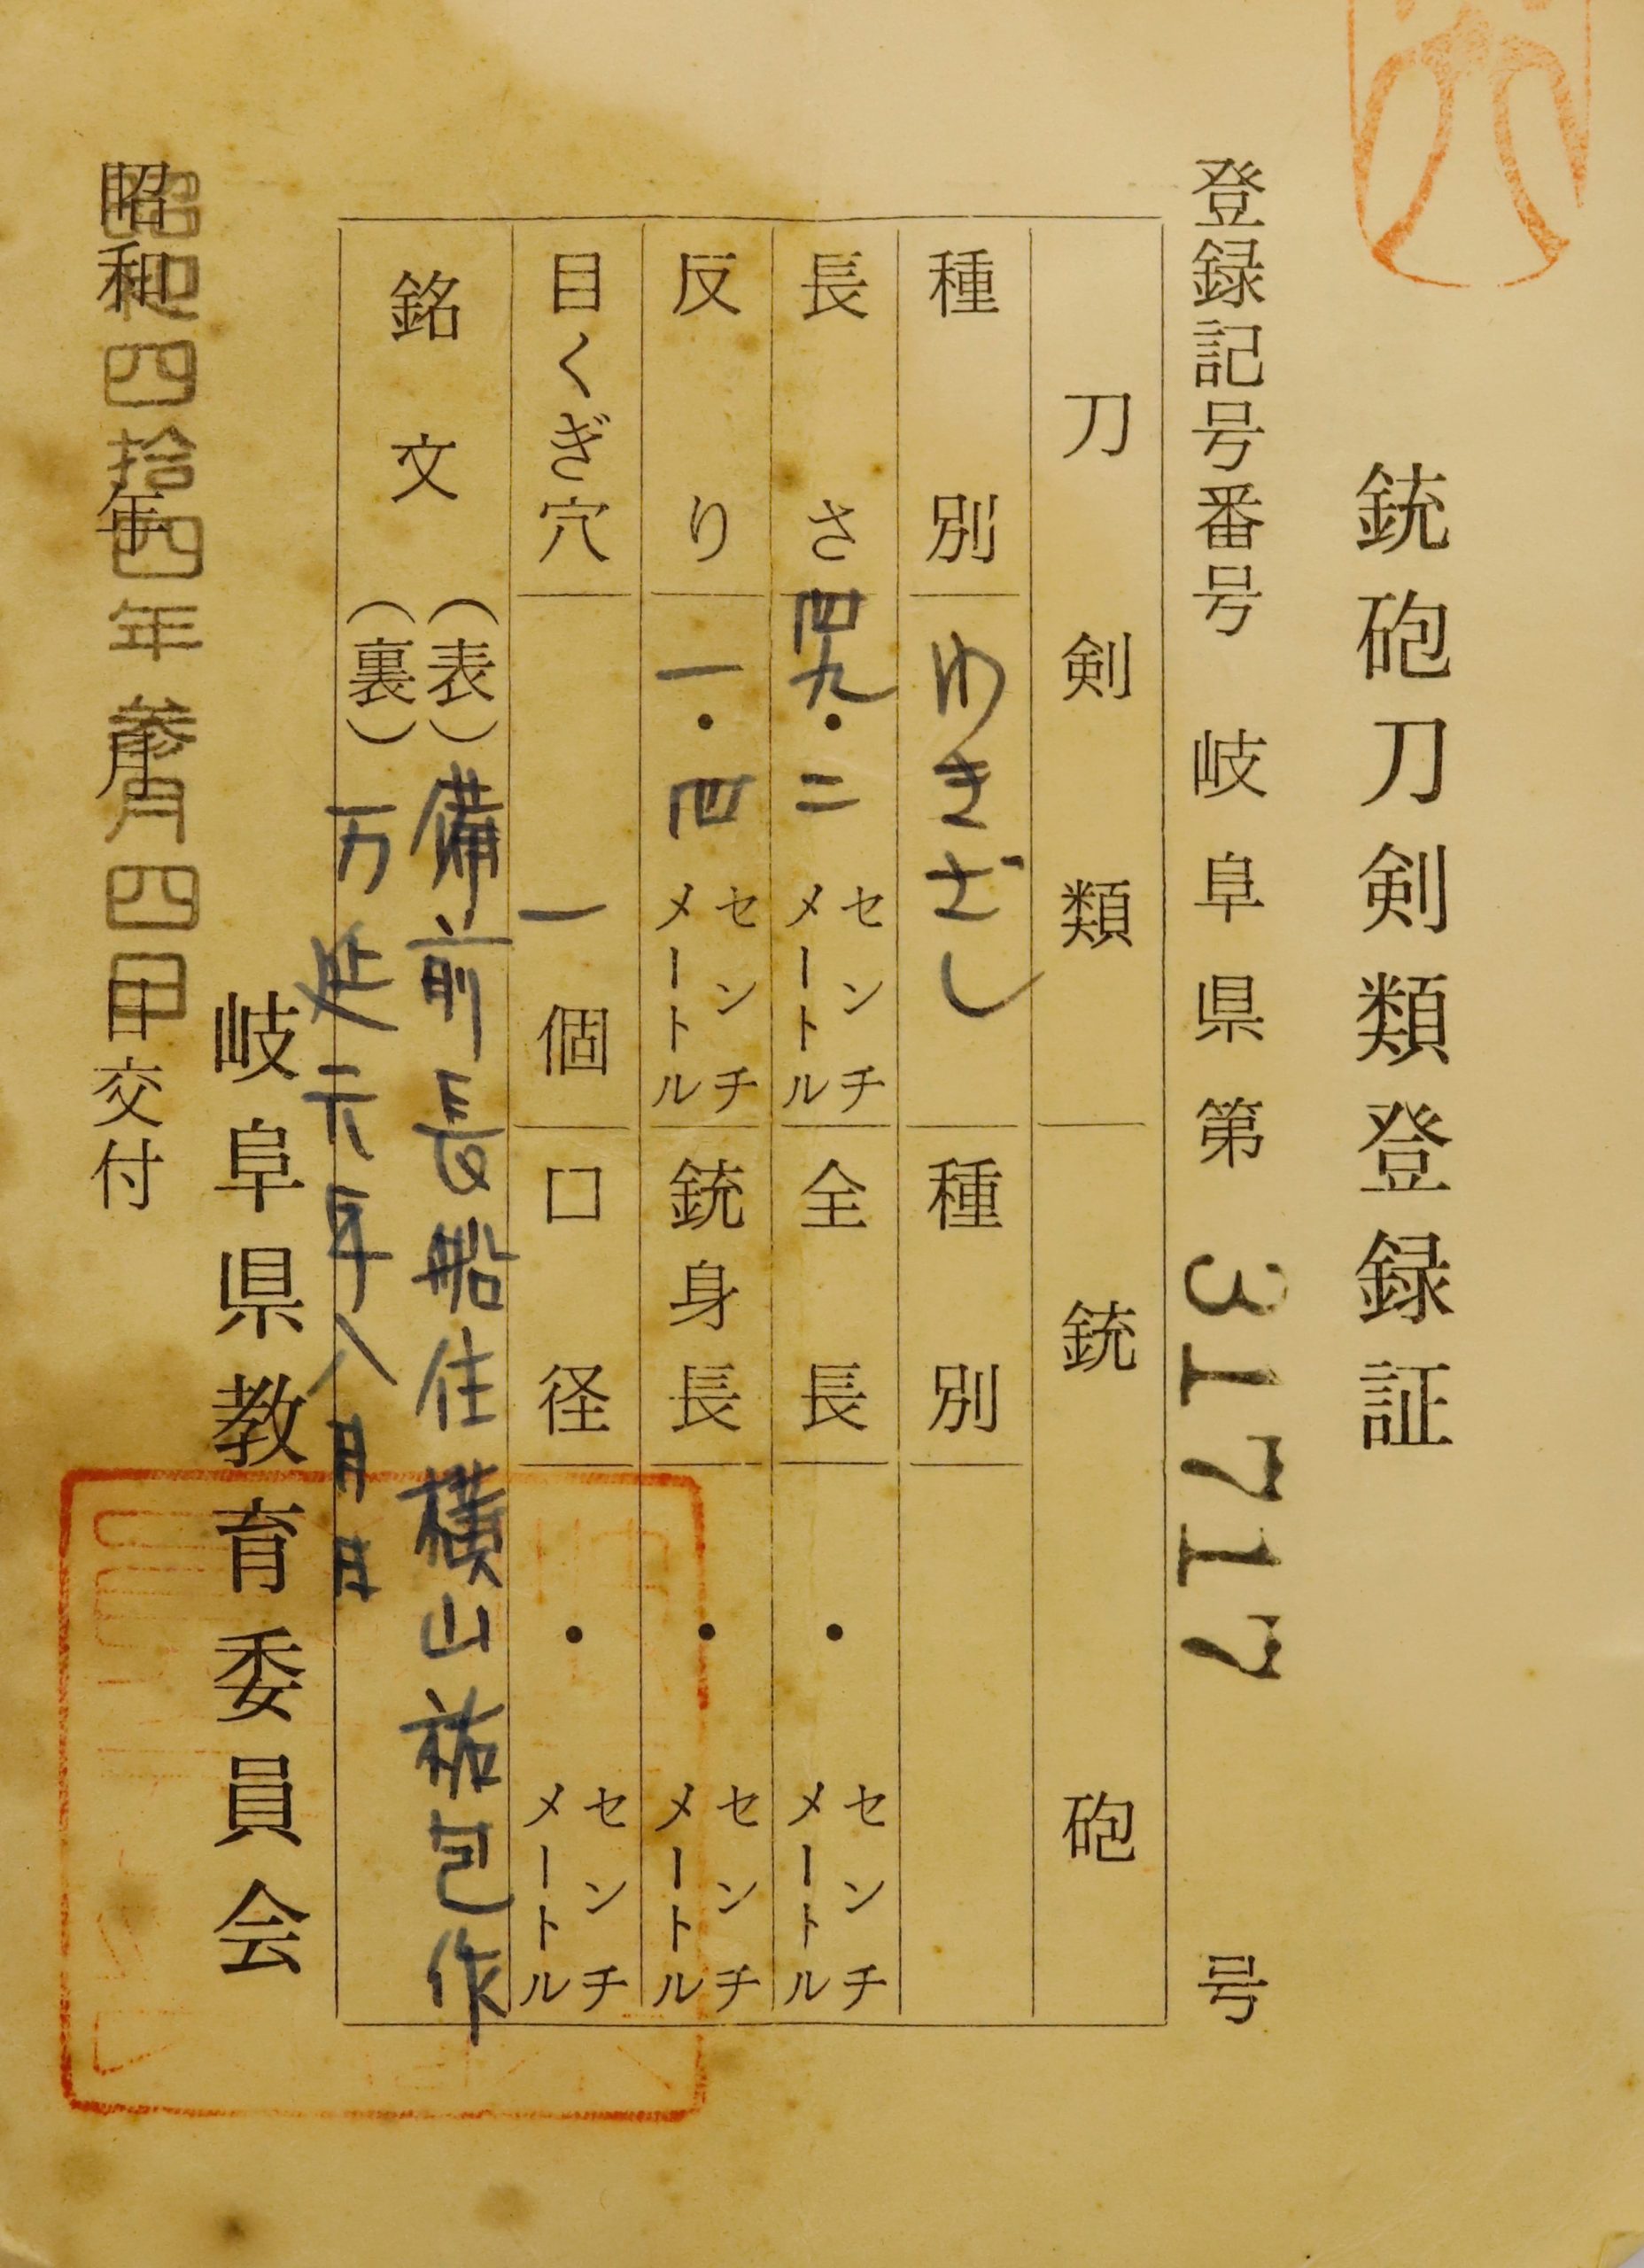 銃砲刀剣類登録証
登録記号番号 岐阜県第 31717 号
刀剣類 銃砲
種別 わきざし 種別
長さ 四九・二 センチメートル 全長 ・ センチメートル
反り 一・四 センチメートル 銃身長 ・ センチメートル
目くぎ穴 一個 口径 ・ センチメートル
銘文 (表) 備前長船住横山祐包作
(裏) 万延元年八月日
岐阜県教育委員会
昭和 年 月 日交付
昭和四拾四年参月四日